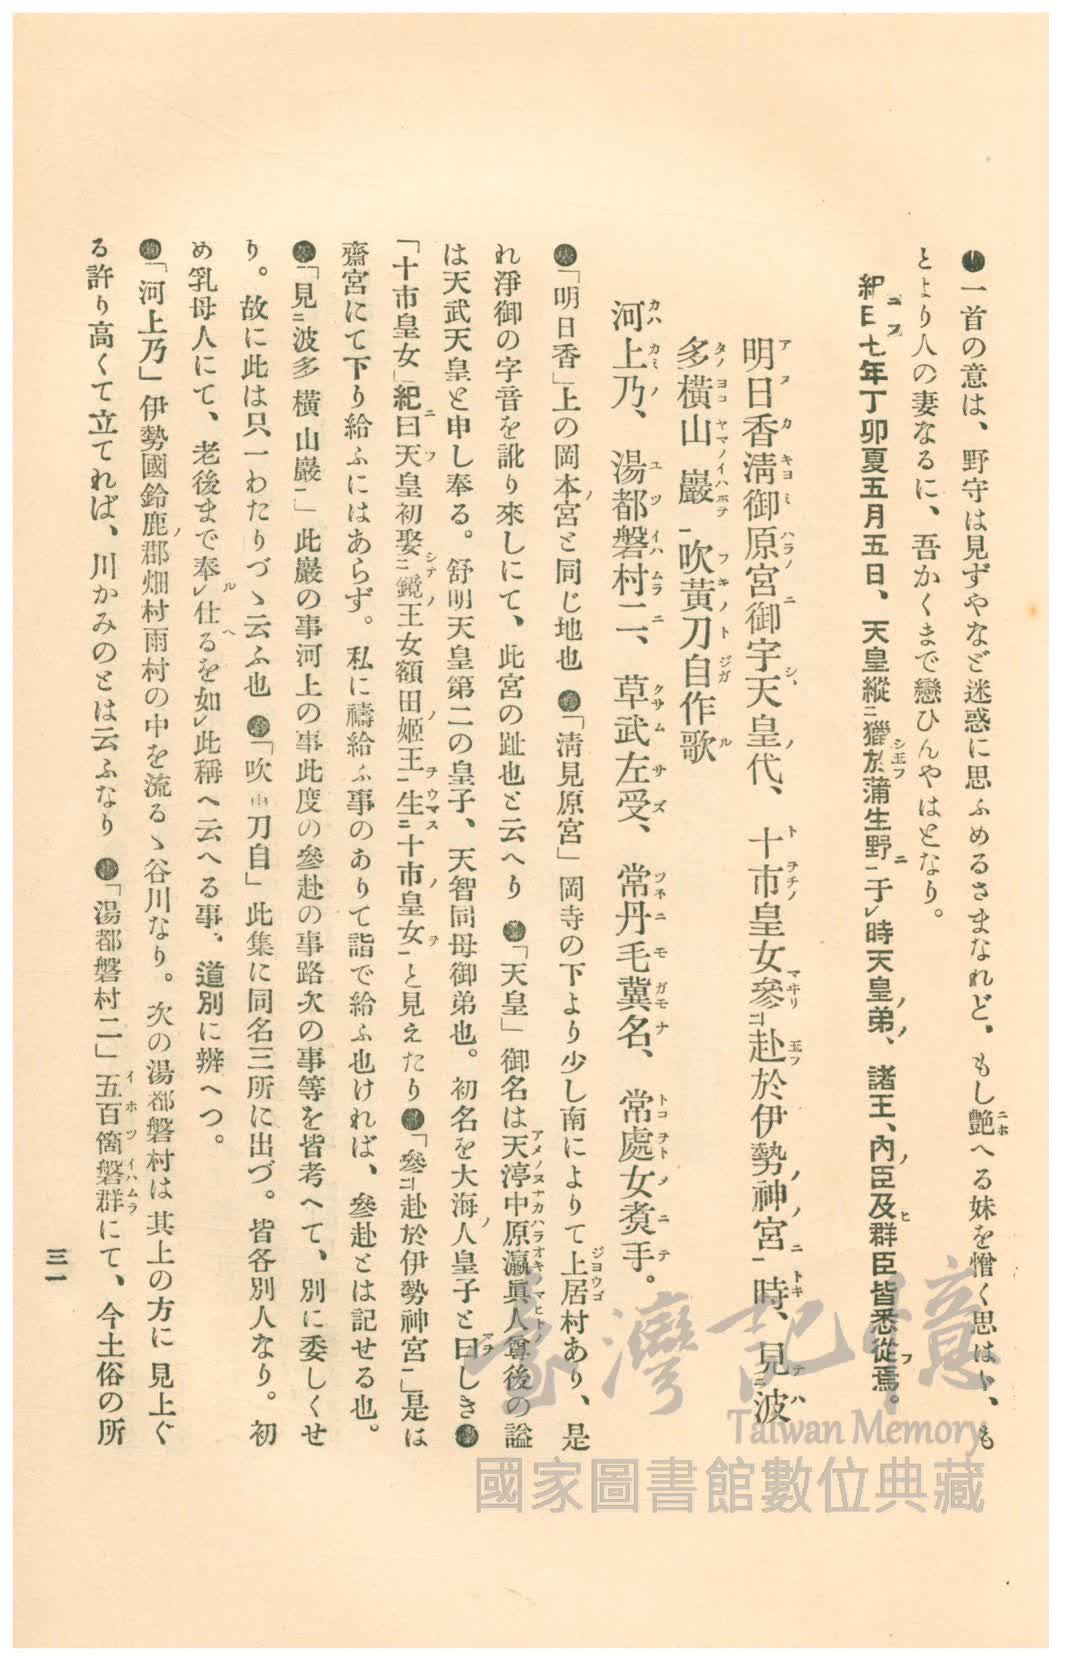 ●一首の意は、野守は見ずやなど迷惑に思ふめるさまなれど、もし艶へる妹を憎く思はゞ、も
とより人の妻なるに、吾かくまで戀ひんやはとなり。
紀曰七年丁卯夏五月五日、天皇縱二獵於蒲生野一于レ時天皇弟、諸王、內臣及群臣皆悉從焉。
明日香淸御原宮御宇天皇代、十市皇女參二赴於伊勢神宮一時、見二波
多橫山巖一吹黃刀自作歌
河上乃、湯都磐村二、草武左受、常丹毛冀名、常處女煑手。
●「明日香」上の岡本宮と同じ地也●「淸見原宮」岡寺の下より少し南によりて上居村あり、是
れ淨御の字音を訛り來しにて、此宮の趾也と云へり●「天皇」御名は天渟中原瀛眞人尊後の謚
は天武天皇と申し奉る。舒明天皇第二の皇子、天智同母御弟也。初名を大海人皇子と曰しき●
「十市皇女」紀曰天皇初娶二鏡王女額田姬王一生二十市皇女一と見えたり●「參二赴於伊勢神宮一」是は
齋宮にて下り給ふにはあらず。私に禱給ふ事のありて詣で給ふ也ければ、參赴とは記せる也。
●「見二波多橫山巖一」此巖の事河上の事此度の參赴の事路次の事等を皆考へて、別に委しくせ
り。故に此は只一わたりづゝ云ふ也●「吹刀自」此集に同名三所に出づ。皆各別人なり。初
め乳母人にて、老後まで奉レ仕るを如レ此稱へ云へる事、道別に辨へつ。
●「河上乃」伊勢國鈴鹿郡畑村雨村の中を流るゝ谷川なり。次の湯都磐村は其上の方に見上ぐ
る許り高くて立てれば、川かみのとは云ふなり●「湯都磐村二」五百箇磐群にて、今土俗の所
三一
臺灣記憶
Taiwan Memory
國家圖書館數位典藏